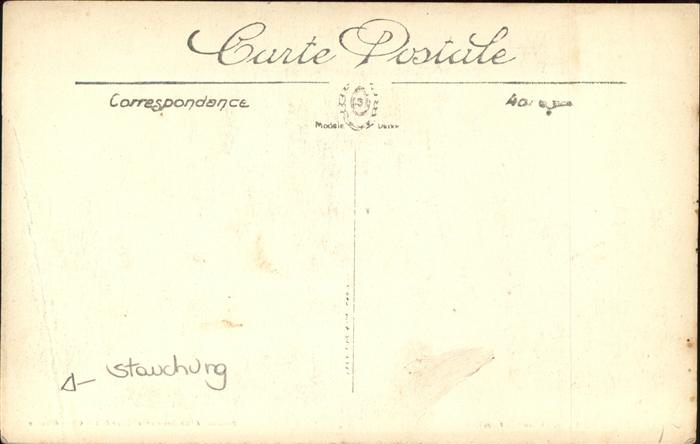 Carte Postale
Correspondance
Modèle
Stauchung